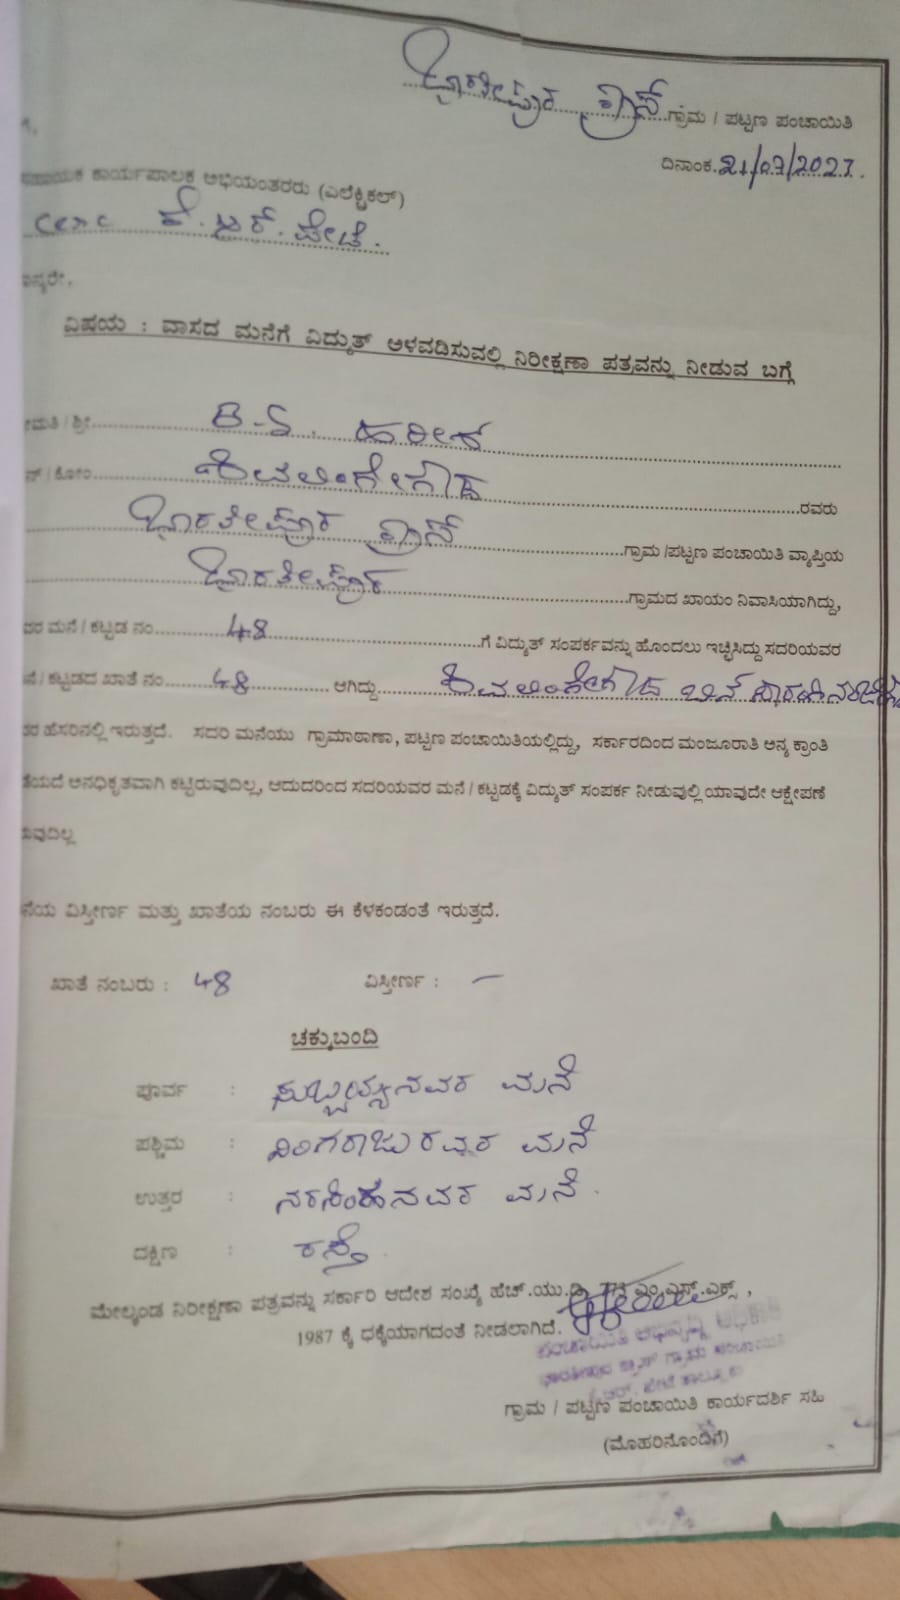 ಭಾರತೀಪುರ ಕ್ರಾಸ್ ಗ್ರಾಮ / ಪಟ್ಟಣ ಪಂಚಾಯಿತಿ
ಗೆ,
ದಿನಾಂಕ. 21/07/2023.
ಸಹಾಯಕ ಕಾರ್ಯಪಾಲಕ ಅಭಿಯಂತರರು (ಎಲೆಕ್ಟ್ರಿಕಲ್)
cesc ಕೆ.ಆರ್.ಪೇಟೆ.
ಮಾನ್ಯರೇ,
ವಿಷಯ : ವಾಸದ ಮನೆಗೆ ವಿದ್ಯುತ್ ಅಳವಡಿಸುವಲ್ಲಿ ನಿರೀಕ್ಷಣಾ ಪತ್ರವನ್ನು ನೀಡುವ ಬಗ್ಗೆ
ಮತಿ / ಶ್ರೀ B.S. ಹರೀಶ
ನ್ / ಕೋಂ ಶಿವಲಿಂಗೇಗೌಡ ರವರು
ಭಾರತೀಪುರ ಕ್ರಾಸ್ ಗ್ರಾಮ /ಪಟ್ಟಣ ಪಂಚಾಯಿತಿ ವ್ಯಾಪ್ತಿಯ
ಭಾರತೀಪುರ ಗ್ರಾಮದ ಖಾಯಂ ನಿವಾಸಿಯಾಗಿದ್ದು,
ವರ ಮನೆ / ಕಟ್ಟಡ ನಂ 48 ಗೆ ವಿದ್ಯುತ್ ಸಂಪರ್ಕವನ್ನು ಹೊಂದಲು ಇಚ್ಛಿಸಿದ್ದು ಸದರಿಯವರ
ನೆ / ಕಟ್ಟಡದ ಖಾತೆ ನಂ 48 ಆಗಿದ್ದು ಶಿವಲಿಂಗೇಗೌಡ ಬಿನ್
ವರ ಹೆಸರಿನಲ್ಲಿ ಇರುತ್ತದೆ. ಸದರಿ ಮನೆಯು ಗ್ರಾಮಠಾಣಾ, ಪಟ್ಟಣ ಪಂಚಾಯಿತಿಯಲ್ಲಿದ್ದು, ಸರ್ಕಾರದಿಂದ ಮಂಜೂರಾತಿ ಅನ್ಯ ಕ್ರಾಂತಿ
ತೆಯದೆ ಅನಧಿಕೃತವಾಗಿ ಕಟ್ಟಿರುವುದಿಲ್ಲ, ಆದುದರಿಂದ ಸದರಿಯವರ ಮನೆ / ಕಟ್ಟಡಕ್ಕೆ ವಿದ್ಯುತ್ ಸಂಪರ್ಕ ನೀಡುವುಲ್ಲಿ ಯಾವುದೇ ಆಕ್ಷೇಪಣೆ
ರುವುದಿಲ್ಲ
ನೆಯ ವಿಸ್ತೀರ್ಣ ಮತ್ತು ಖಾತೆಯ ನಂಬರು ಈ ಕೆಳಕಂಡಂತೆ ಇರುತ್ತದೆ.
ಖಾತೆ ನಂಬರು : 48 ವಿಸ್ತೀರ್ಣ : —
ಚಕ್ಕುಬಂದಿ
ಪೂರ್ವ : ಸುಬ್ಬಯ್ಯನವರ ಮನೆ
ಪಶ್ಚಿಮ : ನಿಂಗರಾಜುರವರ ಮನೆ
ಉತ್ತರ : ನರಸಿಂಹನವರ ಮನೆ.
ದಕ್ಷಿಣ : ರಸ್ತೆ.
ಮೇಲ್ಕಂಡ ನಿರೀಕ್ಷಣಾ ಪತ್ರವನ್ನು ಸರ್ಕಾರಿ ಆದೇಶ ಸಂಖ್ಯೆ ಹೆಚ್.ಯು.ಡಿ. ಎಂ.ಎಸ್.ಎಕ್ಸ್,
1987 ಕ್ಕೆ ಧಕ್ಕೆಯಾಗದಂತೆ ನೀಡಲಾಗಿದೆ.
ಪಂಚಾಯಿತಿ ಅಭಿವೃದ್ಧಿ ಅಧಿಕಾರಿ
ಭಾರತೀಪುರ ಕ್ರಾಸ್ ಗ್ರಾಮ ಪಂಚಾಯಿತಿ
ಕೆ.ಆರ್. ಪೇಟೆ ತಾಲ್ಲೂಕು
ಗ್ರಾಮ / ಪಟ್ಟಣ ಪಂಚಾಯಿತಿ ಕಾರ್ಯದರ್ಶಿ ಸಹಿ
(ಮೊಹರಿನೊಂದಿಗೆ)